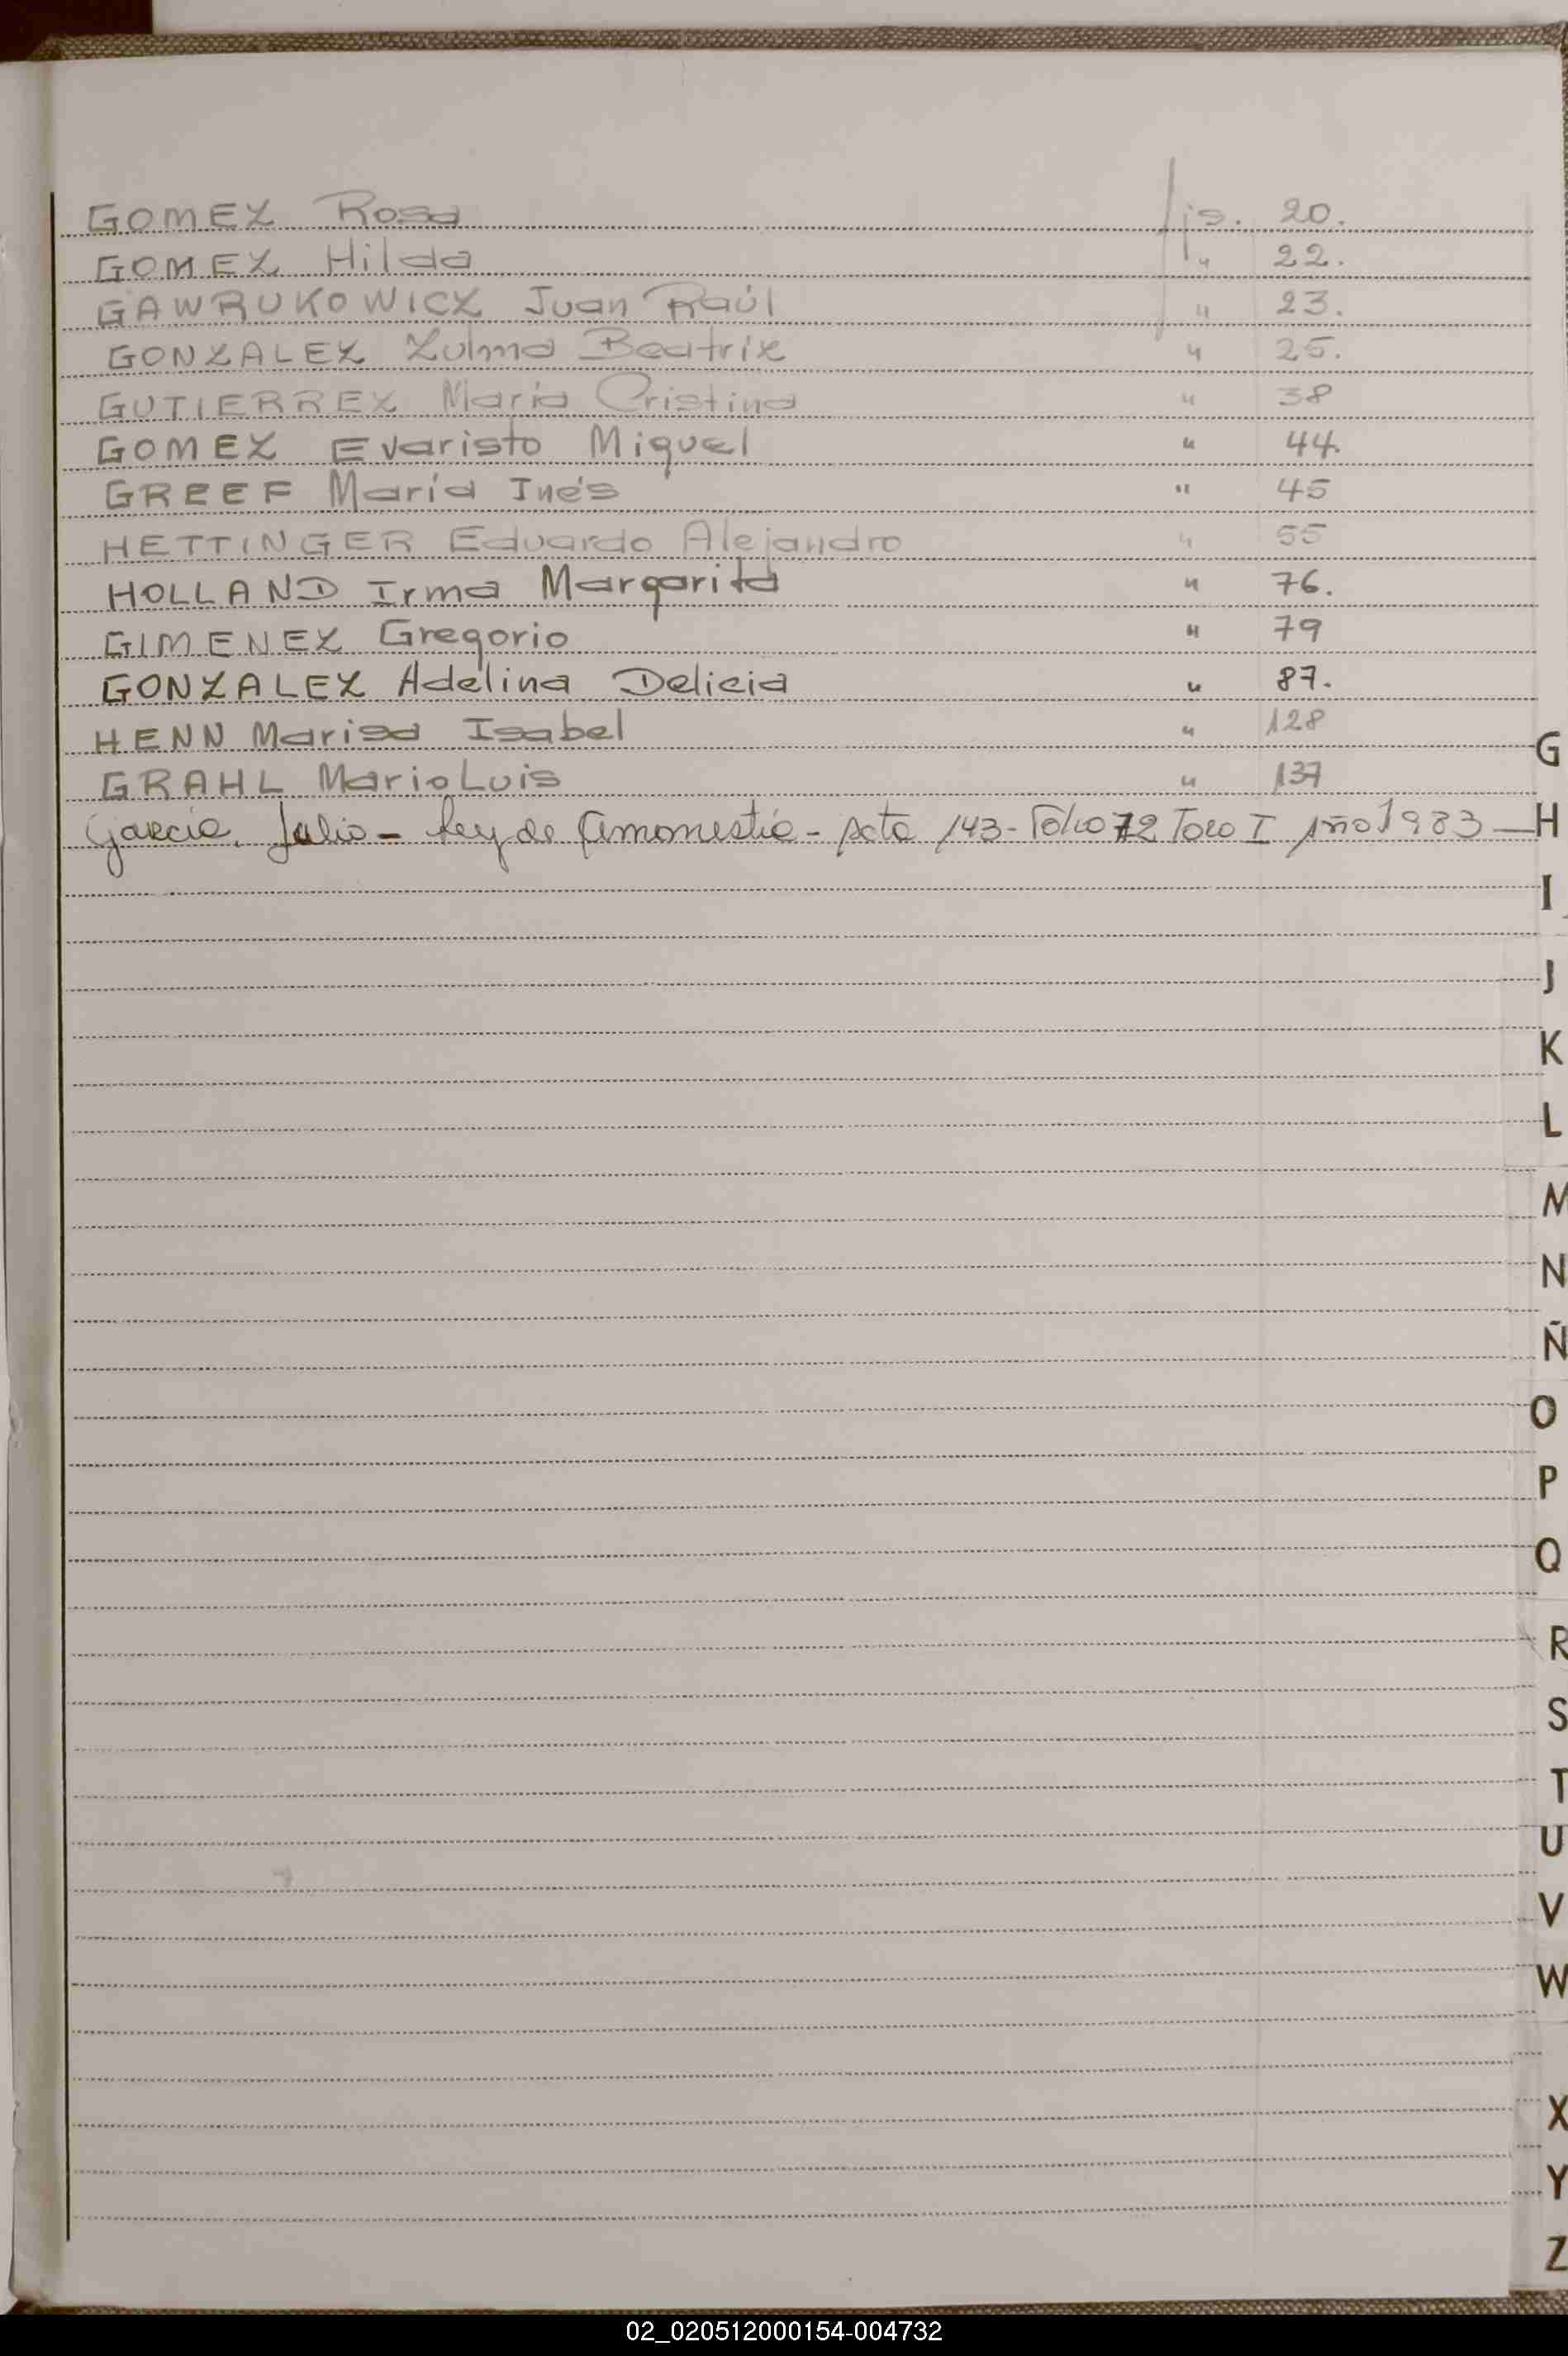 GOMEZ Rosa fjs. 20.
GOMEZ Hilda " 22.
GAWRUKOWICZ Juan Raúl " 23.
GONZALEZ Zulma Beatriz " 25.
GUTIERREZ María Cristina " 38
GOMEZ Evaristo Miguel " 44.
GREEF María Inés " 45
HETTINGER Eduardo Alejandro " 55
HOLLAND Irma Margarita " 76.
GIMENEZ Gregorio " 79
GONZALEZ Adelina Delicia " 87.
HENN Marisa Isabel " 128
GRAHL Mario Luis " 137
García, Julio - Ley de Amonestia - Acta 143 - Folio 72 Tomo I Año 1983
G
H
I
J
K
L
M
N
Ñ
O
P
Q
R
S
T
U
V
W
X
Y
Z
02_020512000154-004732